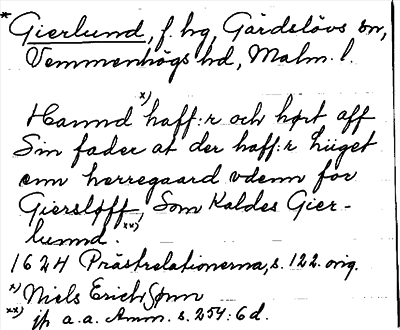 * Gierlund, f. hg, Gärdslövs sn,
Vemmenhögs hd, Malm. l.
Hannd x) haff:r och hørt aff
Sin fader at der haff:r liiget
enn herregaard vdenn for
Giersløff, Som Kaldes Gier-
lunnd. xx)
1624 Prästrelationerna, s. 122. orig.
x) Niels Erich Sønn
xx) jfr a.a. Anm. s. 254: 6 d.